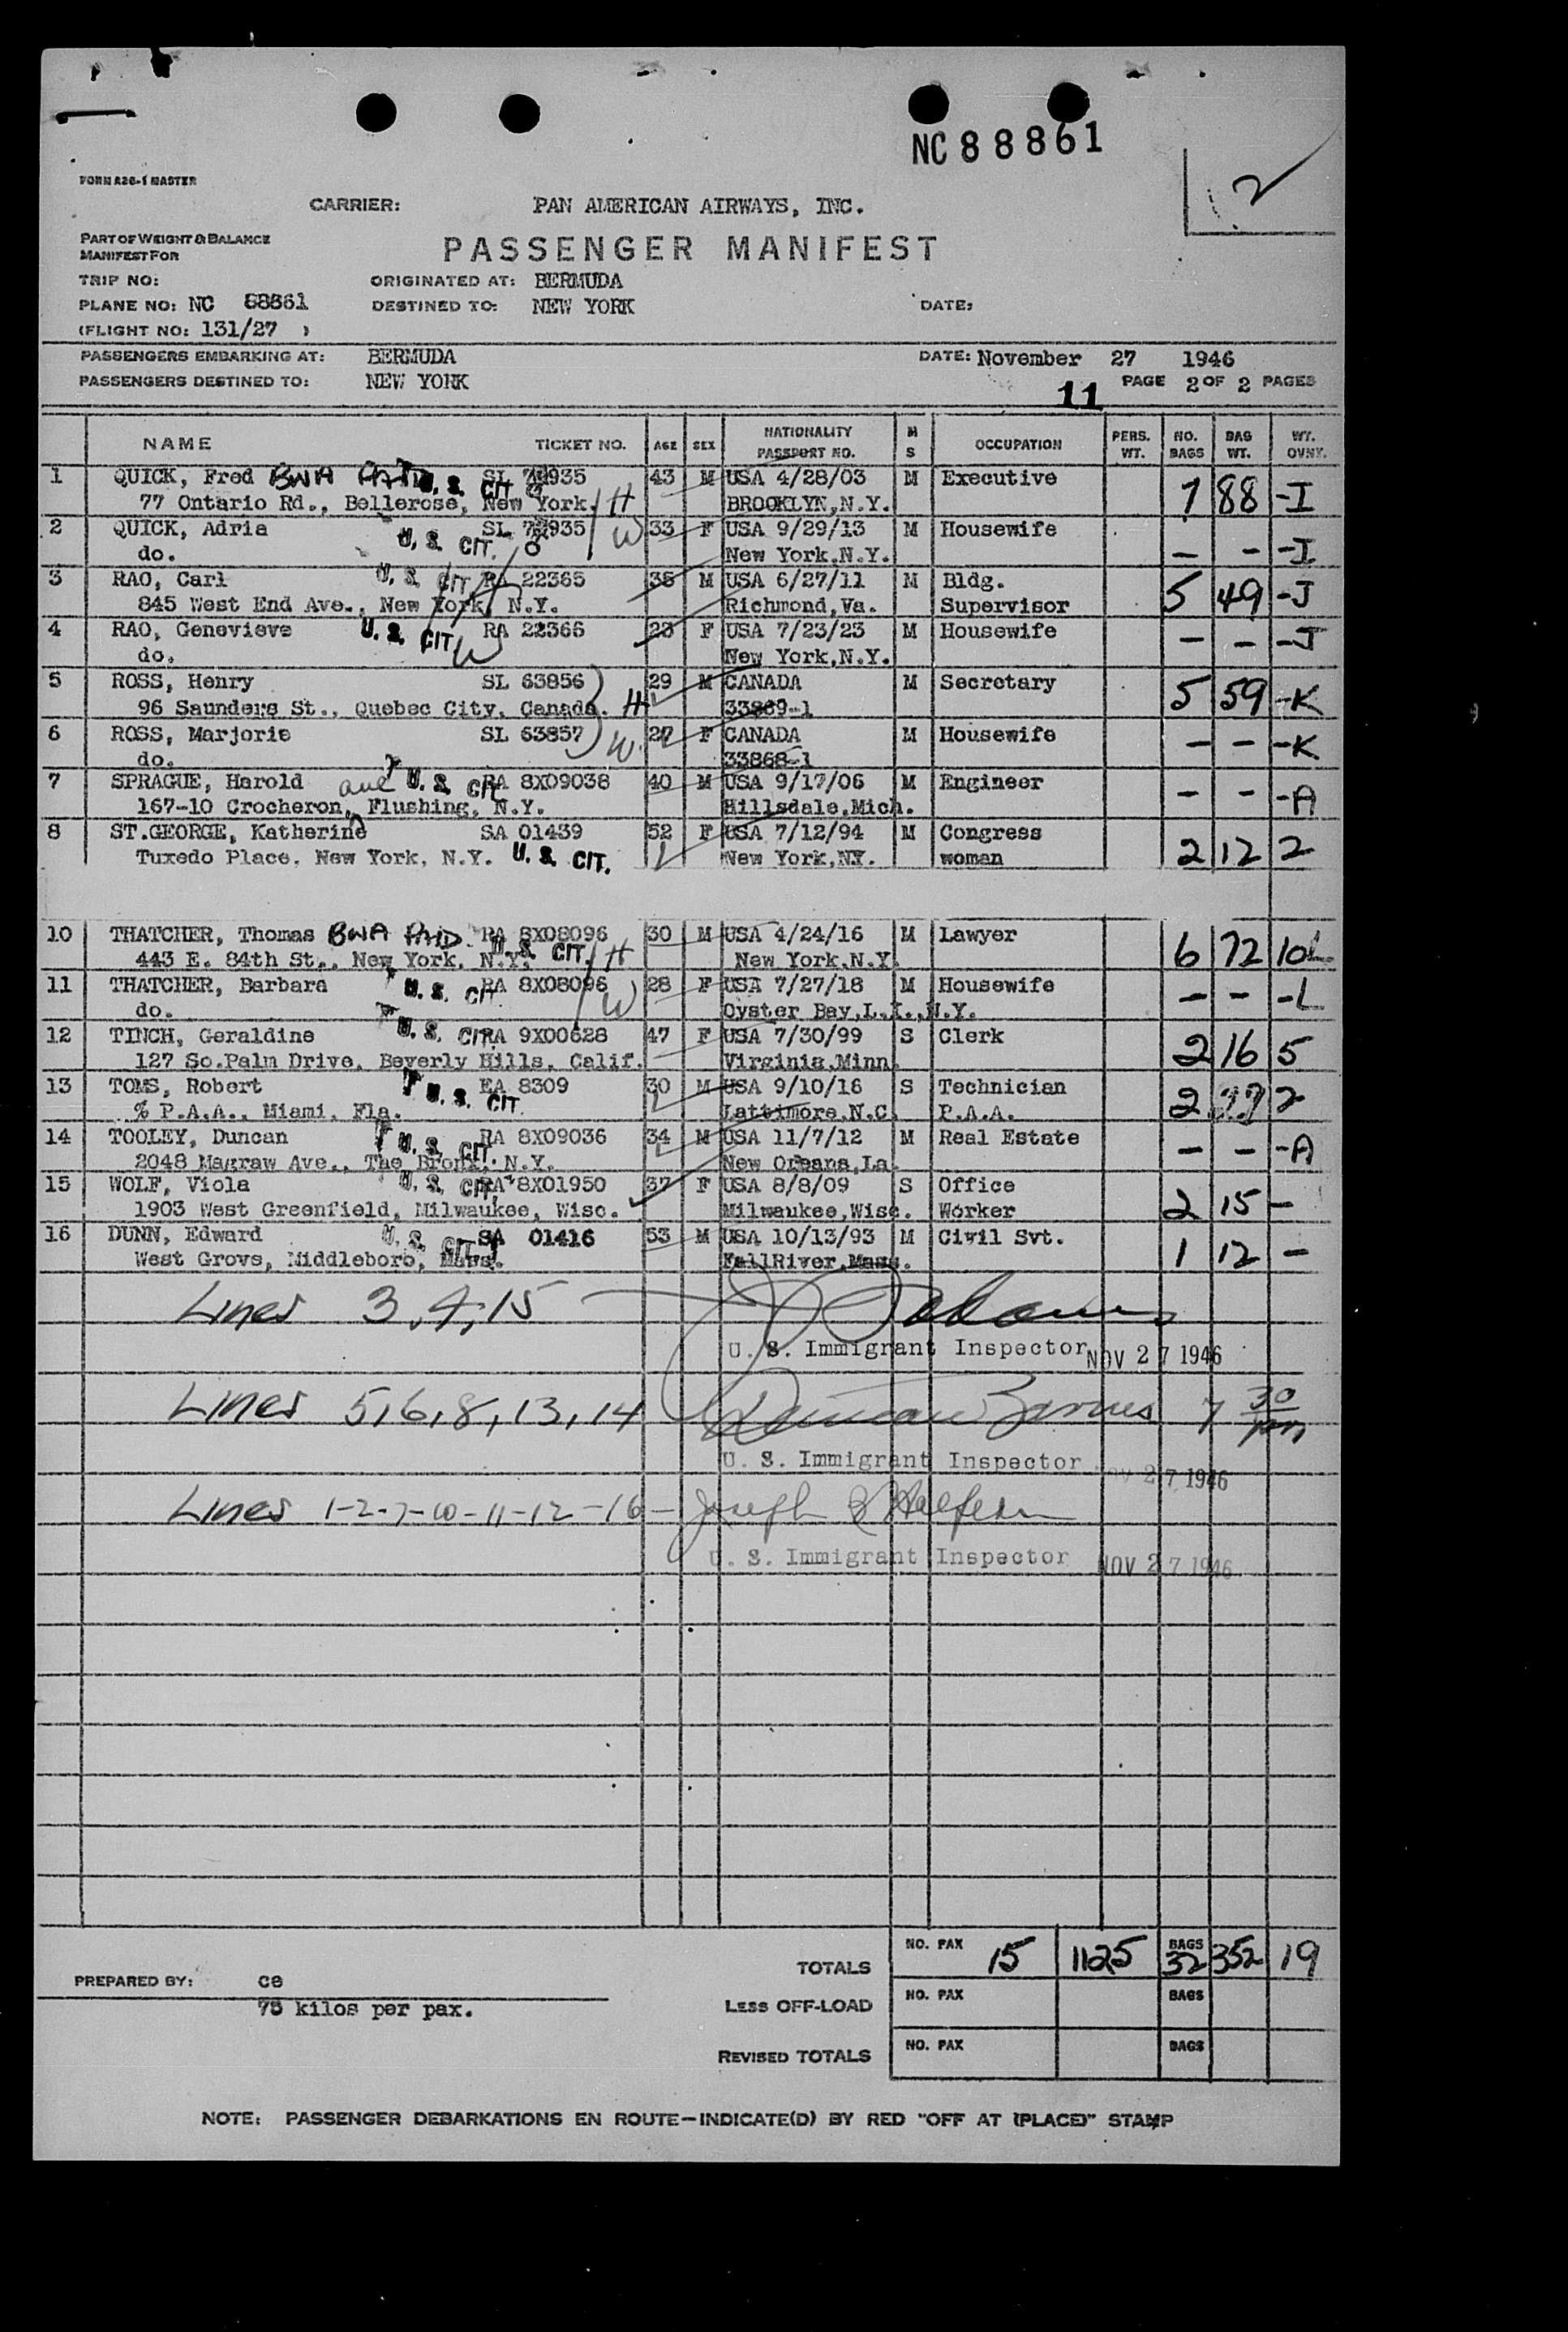 NC 88861
2
FORM A26-1 MASTER
CARRIER: PAN AMERICAN AIRWAYS, INC.
PART OF WEIGHT & BALANCE
MANIFEST FOR
PASSENGER MANIFEST
TRIP NO: ORIGINATED AT: BERMUDA
PLANE NO: NC 88861 DESTINED TO: NEW YORK DATE:
(FLIGHT NO: 131/27 )
PASSENGERS EMBARKING AT: BERMUDA DATE: November 27 1946
PASSENGERS DESTINED TO: NEW YORK 11 PAGE 2 OF 2 PAGES
NAME TICKET NO. AGE SEX NATIONALITY PASSPORT NO. M S OCCUPATION PERS. WT. NO. BAGS BAG WT. WT. OVNT.
1 QUICK, Fred BWA PAID U. S. CIT. SL 935 43 M USA 4/28/03 M Executive 7 88 -I
77 Ontario Rd., Bellerose, New York. H BROOKLYN,N.Y.
2 QUICK, Adria U. S. CIT. SL 935 W 33 F USA 9/29/13 M Housewife - - -I
do. New York.N.Y.
3 RAO, Carl U. S. CIT. RA 22365 35 M USA 6/27/11 M Bldg. 5 49 -J
845 West End Ave., New York, N.Y. Richmond,Va. Supervisor
4 RAO, Genevieve U. S. CIT. W RA 22366 23 F USA 7/23/23 M Housewife - - -J
do. New York,N.Y.
5 ROSS, Henry SL 63856 29 M CANADA M Secretary 5 59 -K
96 Saunders St., Quebec City, Canada. H 33869-1
6 ROSS, Marjorie SL 63857 W. 27 F CANADA M Housewife - - -K
do. 33868-1
7 SPRAGUE, Harold U. S. CIT. RA 8X09038 40 M USA 9/17/06 M Engineer - - -A
167-10 Crocheron, Ave Flushing, N.Y. Hillsdale,Mich.
8 ST.GEORGE, Katherine SA 01439 52 F USA 7/12/94 M Congress 2 12 2
Tuxedo Place, New York, N.Y. U. S. CIT. New York,NY. woman
10 THATCHER, Thomas BWA PAID RA 8X08096 30 M USA 4/24/16 M Lawyer 6 72 10L
443 E. 84th St., New York, N.Y. U. S. CIT. H New York,N.Y.
11 THATCHER, Barbara U. S. CIT. RA 8X08096 W 28 F USA 7/27/18 M Housewife - - -L
do. Oyster Bay,L.I.,N.Y.
12 TINCH, Geraldine U. S. CIT. RA 9X00628 47 F USA 7/30/99 S Clerk 2 16 5
127 So.Palm Drive, Beverly Hills, Calif. Virginia,Minn.
13 TOMS, Robert U. S. CIT. EA 8309 30 M USA 9/10/16 S Technician 2 2
% P.A.A., Miami, Fla. Lattimore,N.C. P.A.A.
14 TOOLEY, Duncan U. S. CIT. RA 8X09036 34 M USA 11/7/12 M Real Estate - - -A
2048 Magraw Ave., The Bronx, N.Y. New Orleans,La.
15 WOLF, Viola U. S. CIT. RA 8X01950 37 F USA 8/8/09 S Office 2 15 -
1903 West Greenfield, Milwaukee, Wisc. Milwaukee,Wisc. Worker
16 DUNN, Edward U. S. CIT. SA 01416 53 M USA 10/13/93 M Civil Svt. 1 12 -
West Grove, Middleboro, Mass. FallRiver,Mass.
Lines 3, 4, 15
U. S. Immigrant Inspector NOV 27 1946
Lines 5, 6, 8, 13, 14 Duncan 7 30 pm
U. S. Immigrant Inspector NOV 27 1946
Lines 1-2-7-10-11-12-16 - Joseph
U. S. Immigrant Inspector NOV 27 1946
TOTALS NO. PAX 15 1125 BAGS 32 352 19
PREPARED BY: ce
75 kilos per pax.
LESS OFF-LOAD NO. PAX BAGS
REVISED TOTALS NO. PAX BAGS
NOTE: PASSENGER DEBARKATIONS EN ROUTE—INDICATE(D) BY RED "OFF AT (PLACE)" STAMP